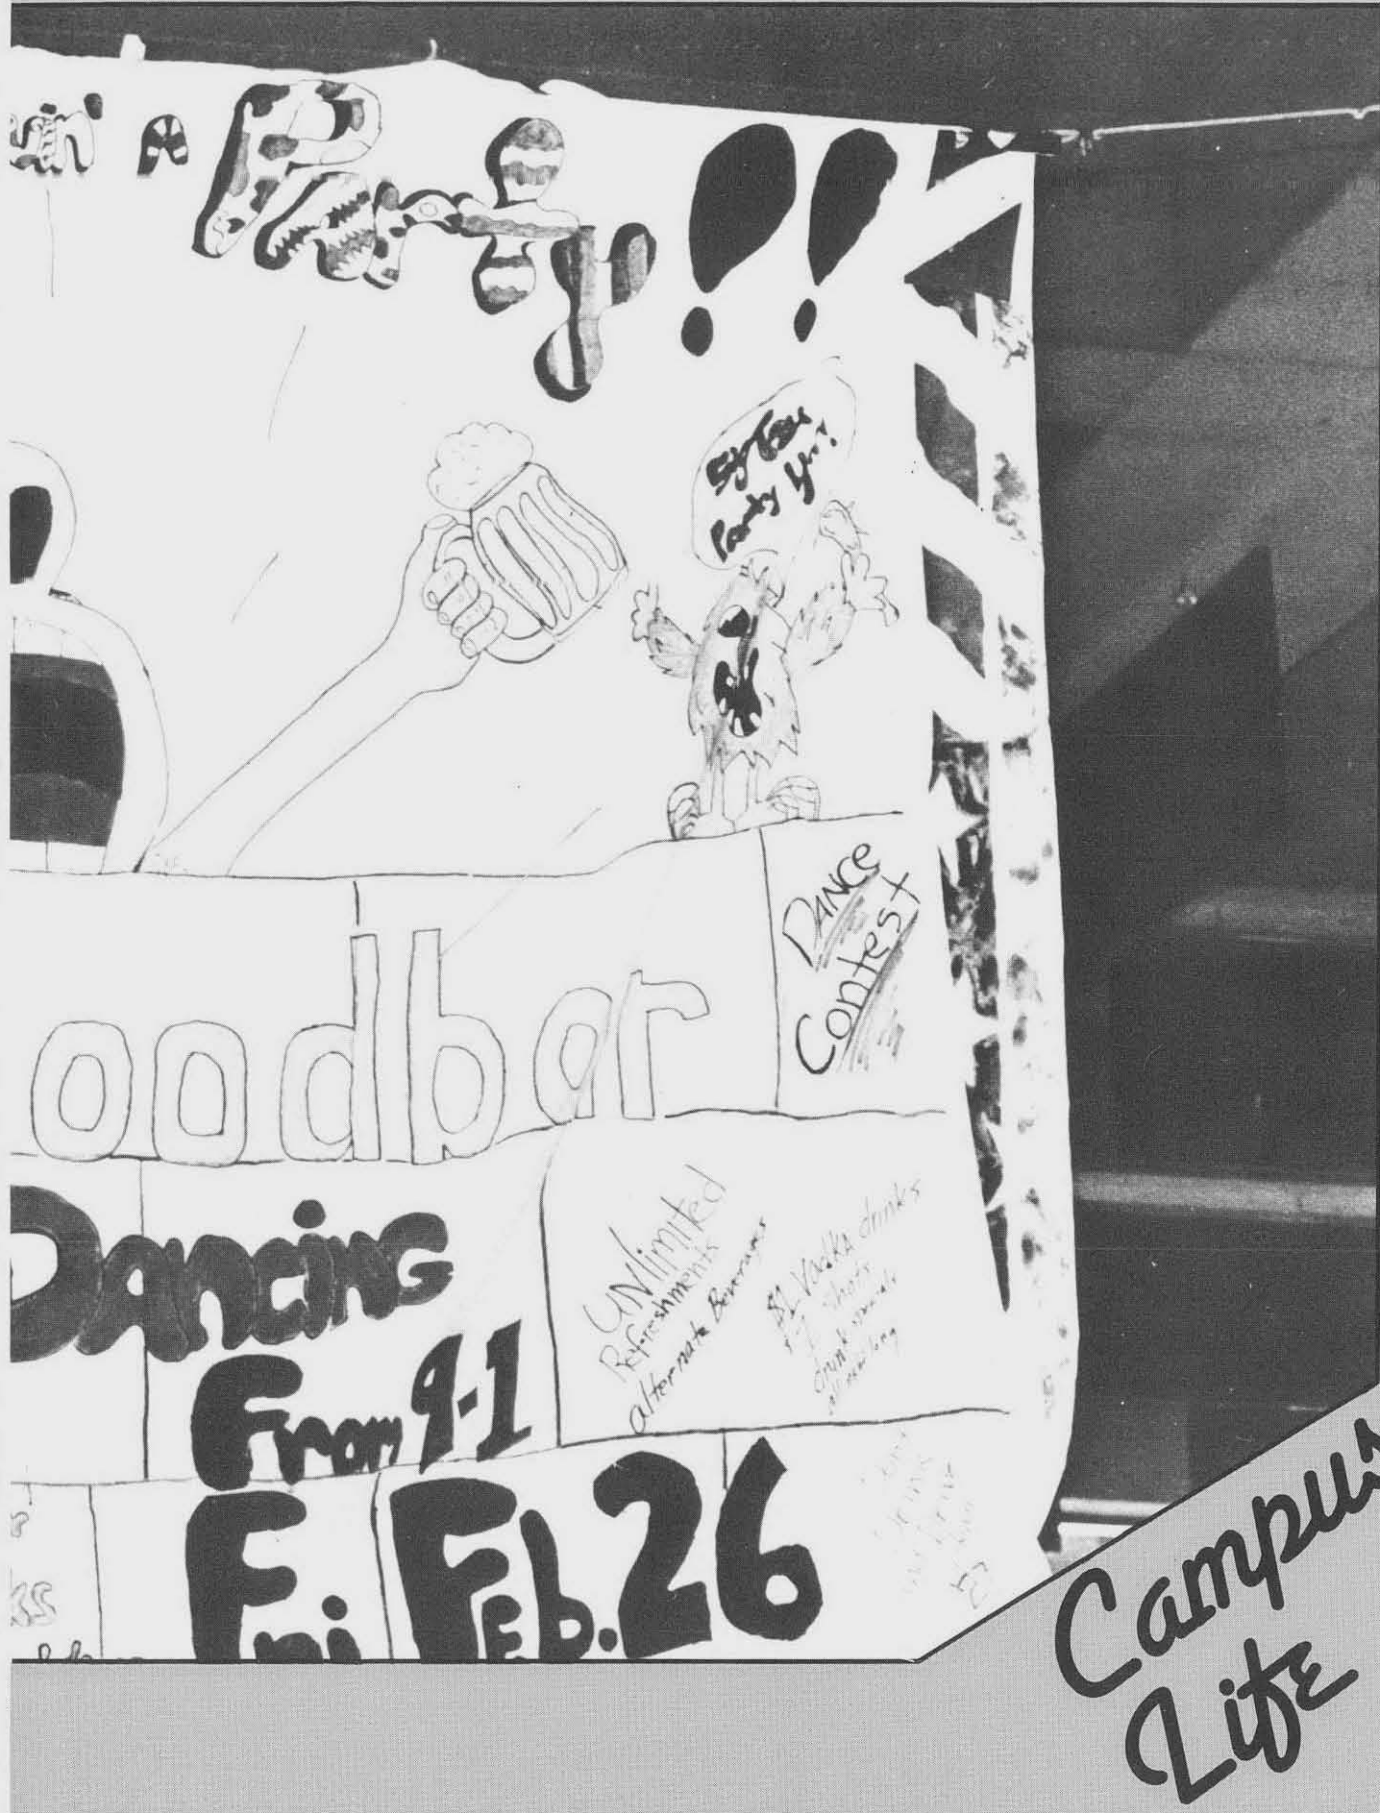 in' A Party!!
Party
DANCE
Contest
oodbar
Dancing
From 9-1
UNlimited
Refreshments
alternate Beverages
$1 Vodka drinks
shots
drink specials
all nite long
Fri Feb. 26
Campus
Life